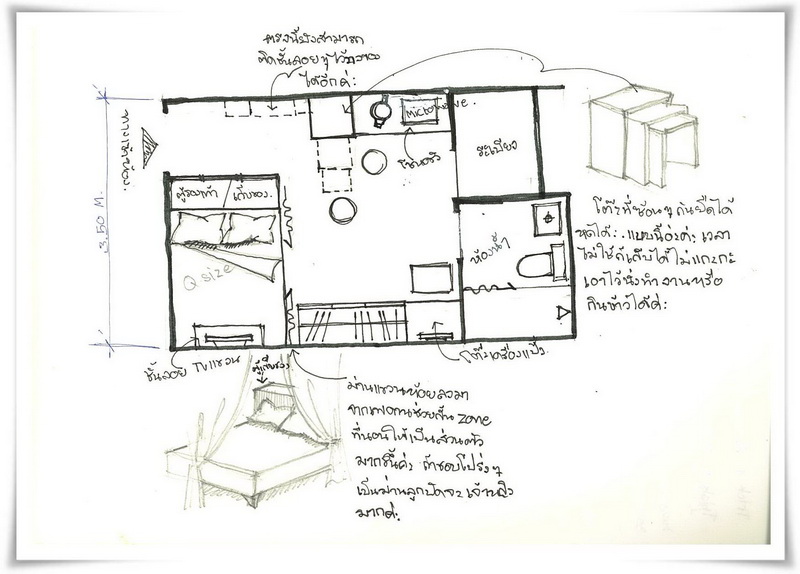 ตรงนี้ยังสามารถ
ติดชั้นลอยๆไว้วางของ
ได้อีกค่ะ
ทางเข้าห้อง
3.50 M.
Microwave.
โซนครัว
ระเบียง
ตู้รองเท้า
เก็บของ
Q size
ห้องน้ำ
ชั้นลอย TVแขวน
โต๊ะเครื่องแป้ง
ตู้เก็บของ
โต๊ะที่ซ้อนๆกันยืดได้
หดได้ แบบนี้อ่ะค่ะ เวลา
ไม่ใช้ก็เก็บได้ไม่เกะกะ
เอาไว้นั่งทำงานหรือ
กินข้าวได้ค่ะ
ม่านแขวนห้อยลงมา
จากเพดานช่วยกั้น zone
ที่นอนให้เป็นส่วนตัว
มากขึ้นค่ะ ถ้าชอบโปร่งๆ
เป็นม่านลูกปัดจะเจ้าหญิง
มากค่ะ